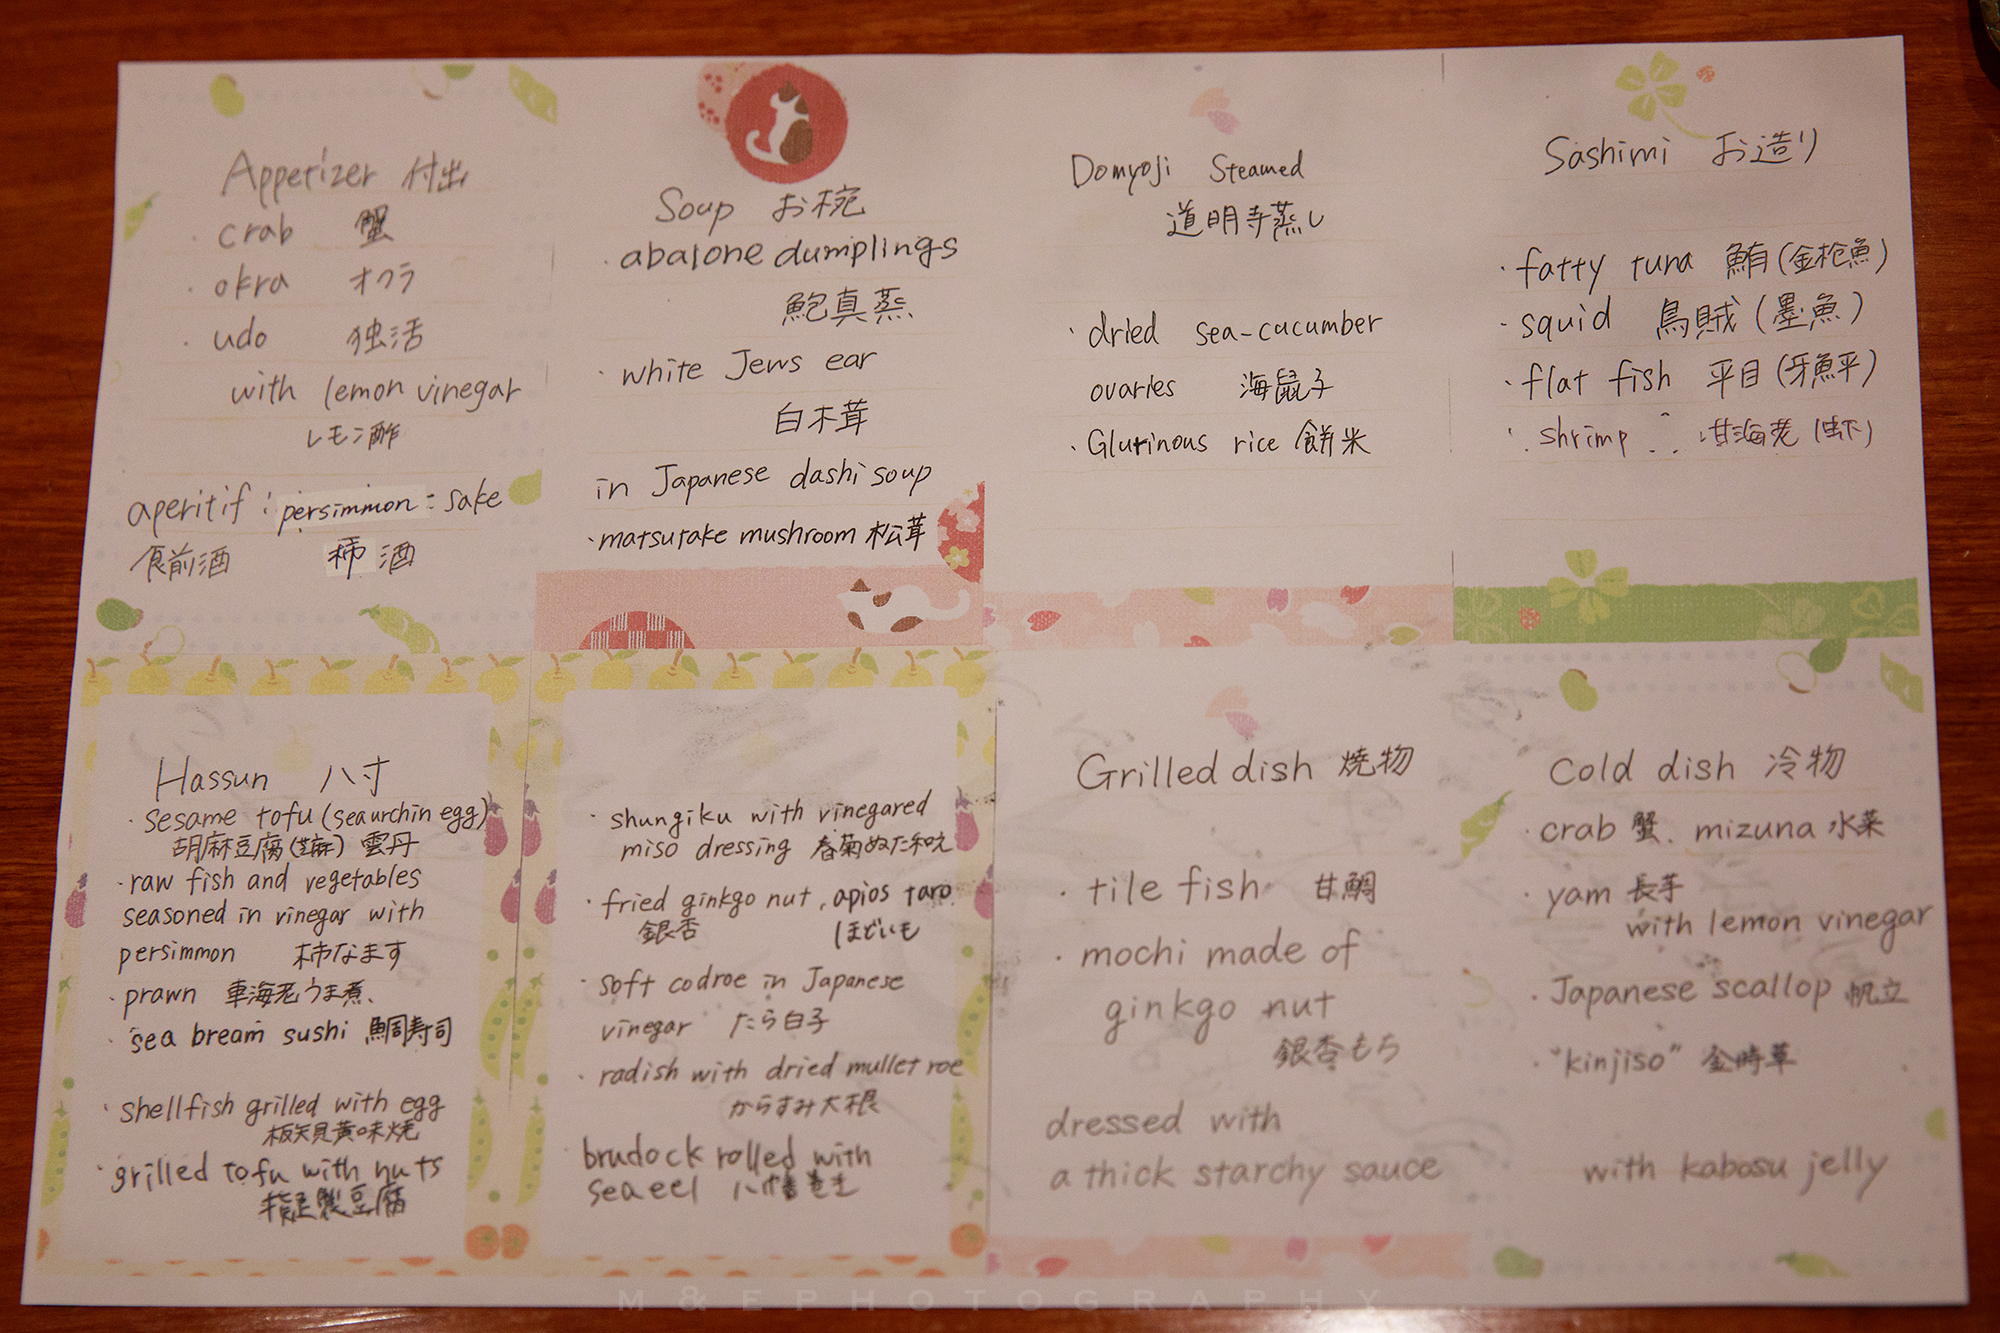 Appetizer 付出
· crab 蟹
· okra オクラ
· udo 独活
with lemon vinegar
レモン酢
aperitif : persimmon : sake
食前酒 柿酒
Soup お椀
· abalone dumplings
鮑真蒸
· white Jews ear
白木茸
in Japanese dashi soup
· matsutake mushroom 松茸
Domyoji Steamed
道明寺蒸し
· dried sea-cucumber
ovaries 海鼠子
· Glutinous rice 餅米
Sashimi お造り
· fatty tuna 鮪 (金枪魚)
· squid 烏賊 (墨魚)
· flat fish 平目 (牙魚平)
· shrimp 甘海老 (虾)
Hassun 八寸
· sesame tofu (sea urchin egg)
胡麻豆腐 (芝麻) 雲丹
· raw fish and vegetables
seasoned in vinegar with
persimmon 柿なます
· prawn 車海老うま煮
· sea bream sushi 鯛寿司
· shellfish grilled with egg
板矢貝黄味焼
· grilled tofu with nuts
製豆腐
· shungiku with vinegared
miso dressing 春菊ぬた和え
· fried ginkgo nut, apios taro
銀杏 ほどいも
· soft codroe in Japanese
vinegar たら白子
· radish with dried mullet roe
からすみ大根
· brudock rolled with
sea eel 八幡巻き
Grilled dish 焼物
· tile fish 甘鯛
· mochi made of
ginkgo nut
銀杏もち
dressed with
a thick starchy sauce
Cold dish 冷物
· crab 蟹、mizuna 水菜
· yam 長芋
with lemon vinegar
· Japanese scallop 帆立
· "kinjiso" 金時草
with kabosu jelly
M&EPHOTOGRAPHY